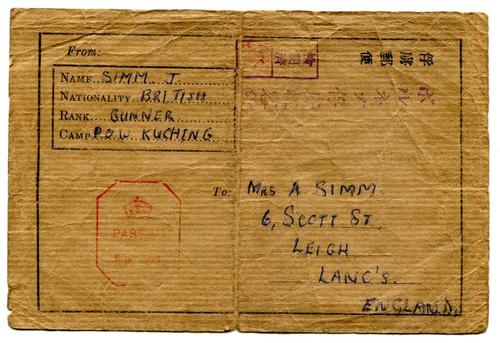 From:
NAME..SIMM J.
NATIONALITY BRITISH
RANK...GUNNER
CAMP.P.O.W. KUCHING
俘虜郵便
To: MRS A SIMM
6, SCOTT ST,
LEIGH
LANC'S.
ENGLAND.
PASSED